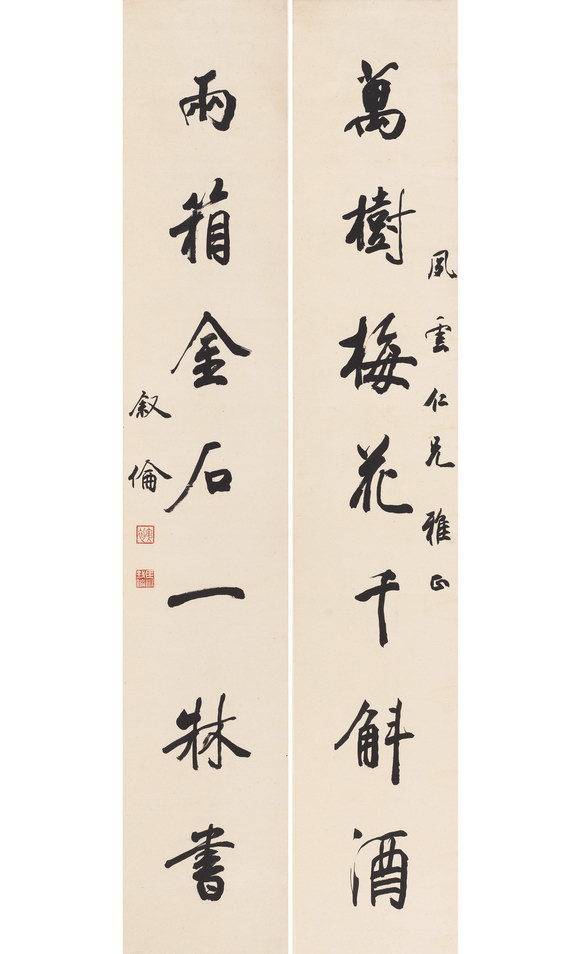 萬樹梅花千斛酒
風雲仁兄雅正
兩箱金石一牀書
叙倫